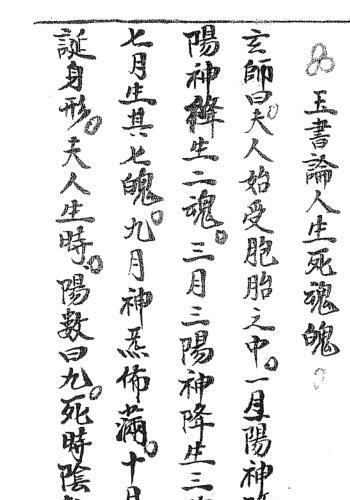 玉書論人生死魂魄
玄師曰夫人始受胞胎之中。一月陽神
陽神降生二魂。三月三陽神降生三
七月生其七魄。九月神炁佈滿。十月
誕身形。夫人生時。陽數曰九。死時陰